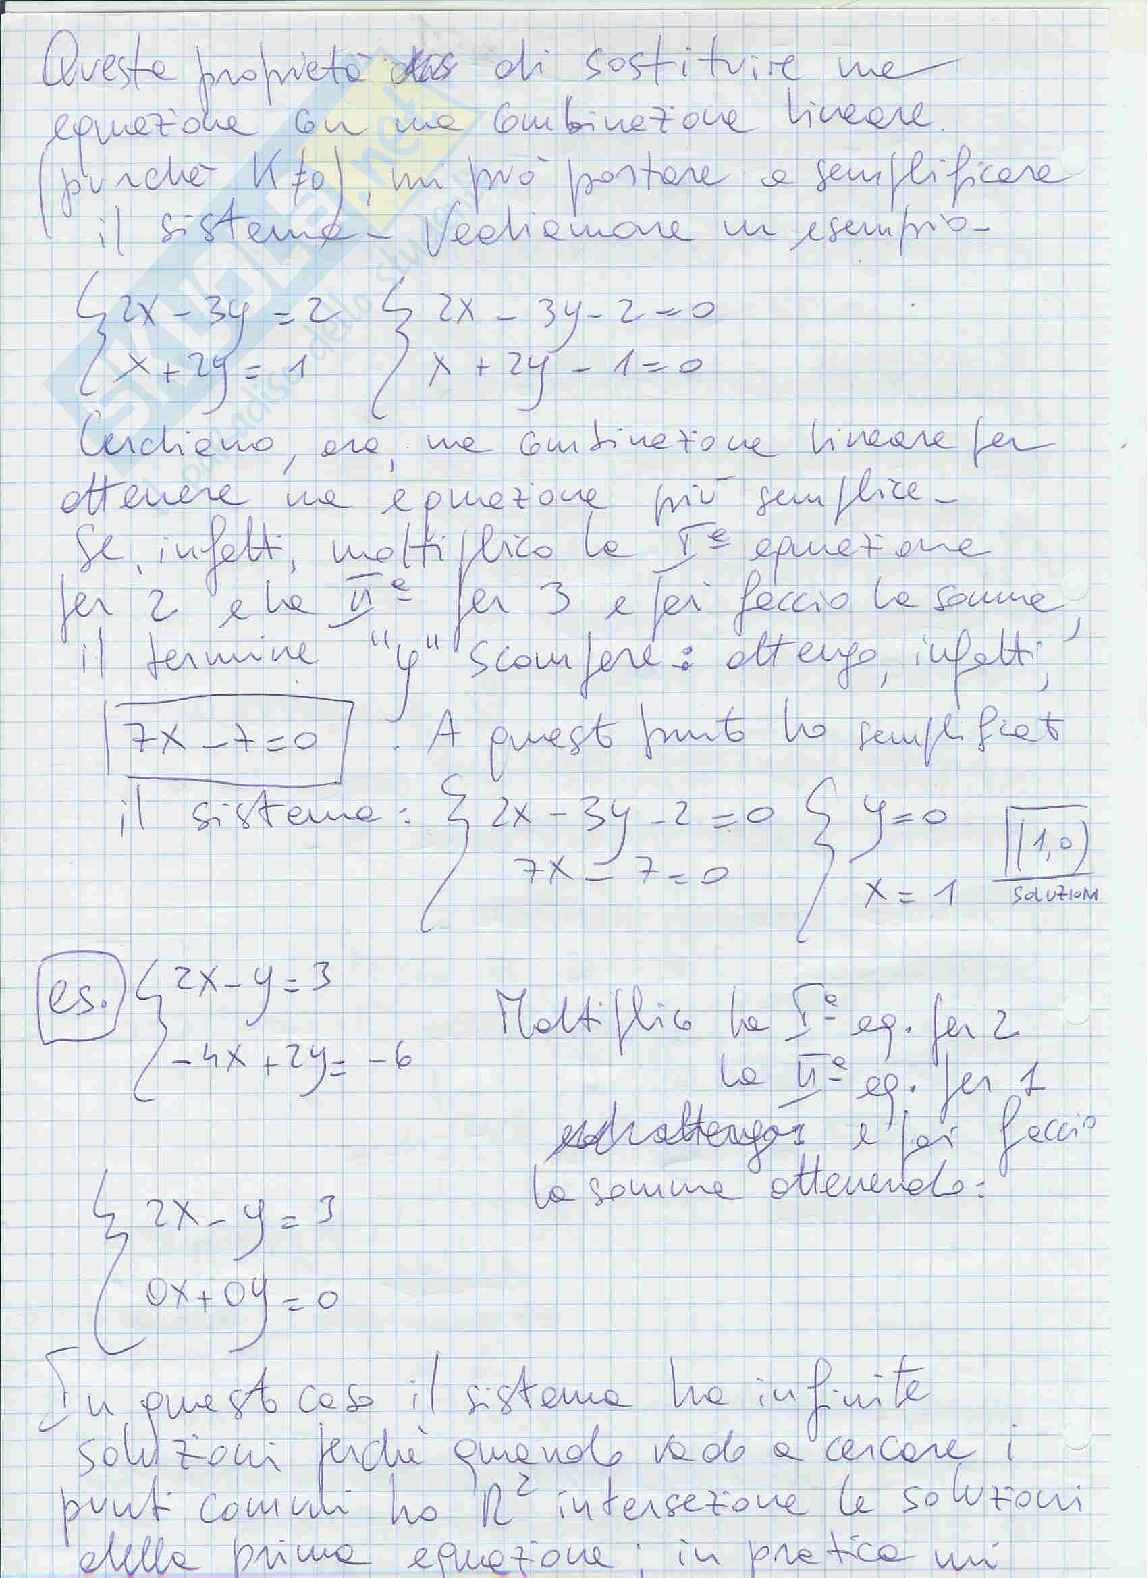 Questa proprietà di sostituire una
equazione con una combinazione lineare
(purchè K≠0), mi può portare a semplificare
il sistema - Vediamone un esempio -
{ 2x - 3y = 2 { 2x - 3y - 2 = 0
x + 2y = 1 x + 2y - 1 = 0
Cerchiamo, ora, una combinazione lineare per
ottenere una equazione più semplice -
Se, infatti, moltiplico la Iª equazione
per 2 e la IIª per 3 e poi faccio la somma,
il termine "y" scompare: ottengo, infatti,
7x - 7 = 0 . A questo punto ho semplificato
il sistema: { 2x - 3y - 2 = 0 { y = 0 (1,0)
7x - 7 = 0 x = 1 soluzioni
es. { 2x - y = 3
-4x + 2y = -6
Moltiplico la Iª eq. per 2
la IIª eq. per 1
e poi faccio
la somma ottenendo:
{ 2x - y = 3
0x + 0y = 0
In questo caso il sistema ha infinite
soluzioni perchè quando vado a cercare i
punti comuni ho R² intersezione le soluzioni
della prima equazione; in pratica mi
SKUOLA.net
paradiso dello studente